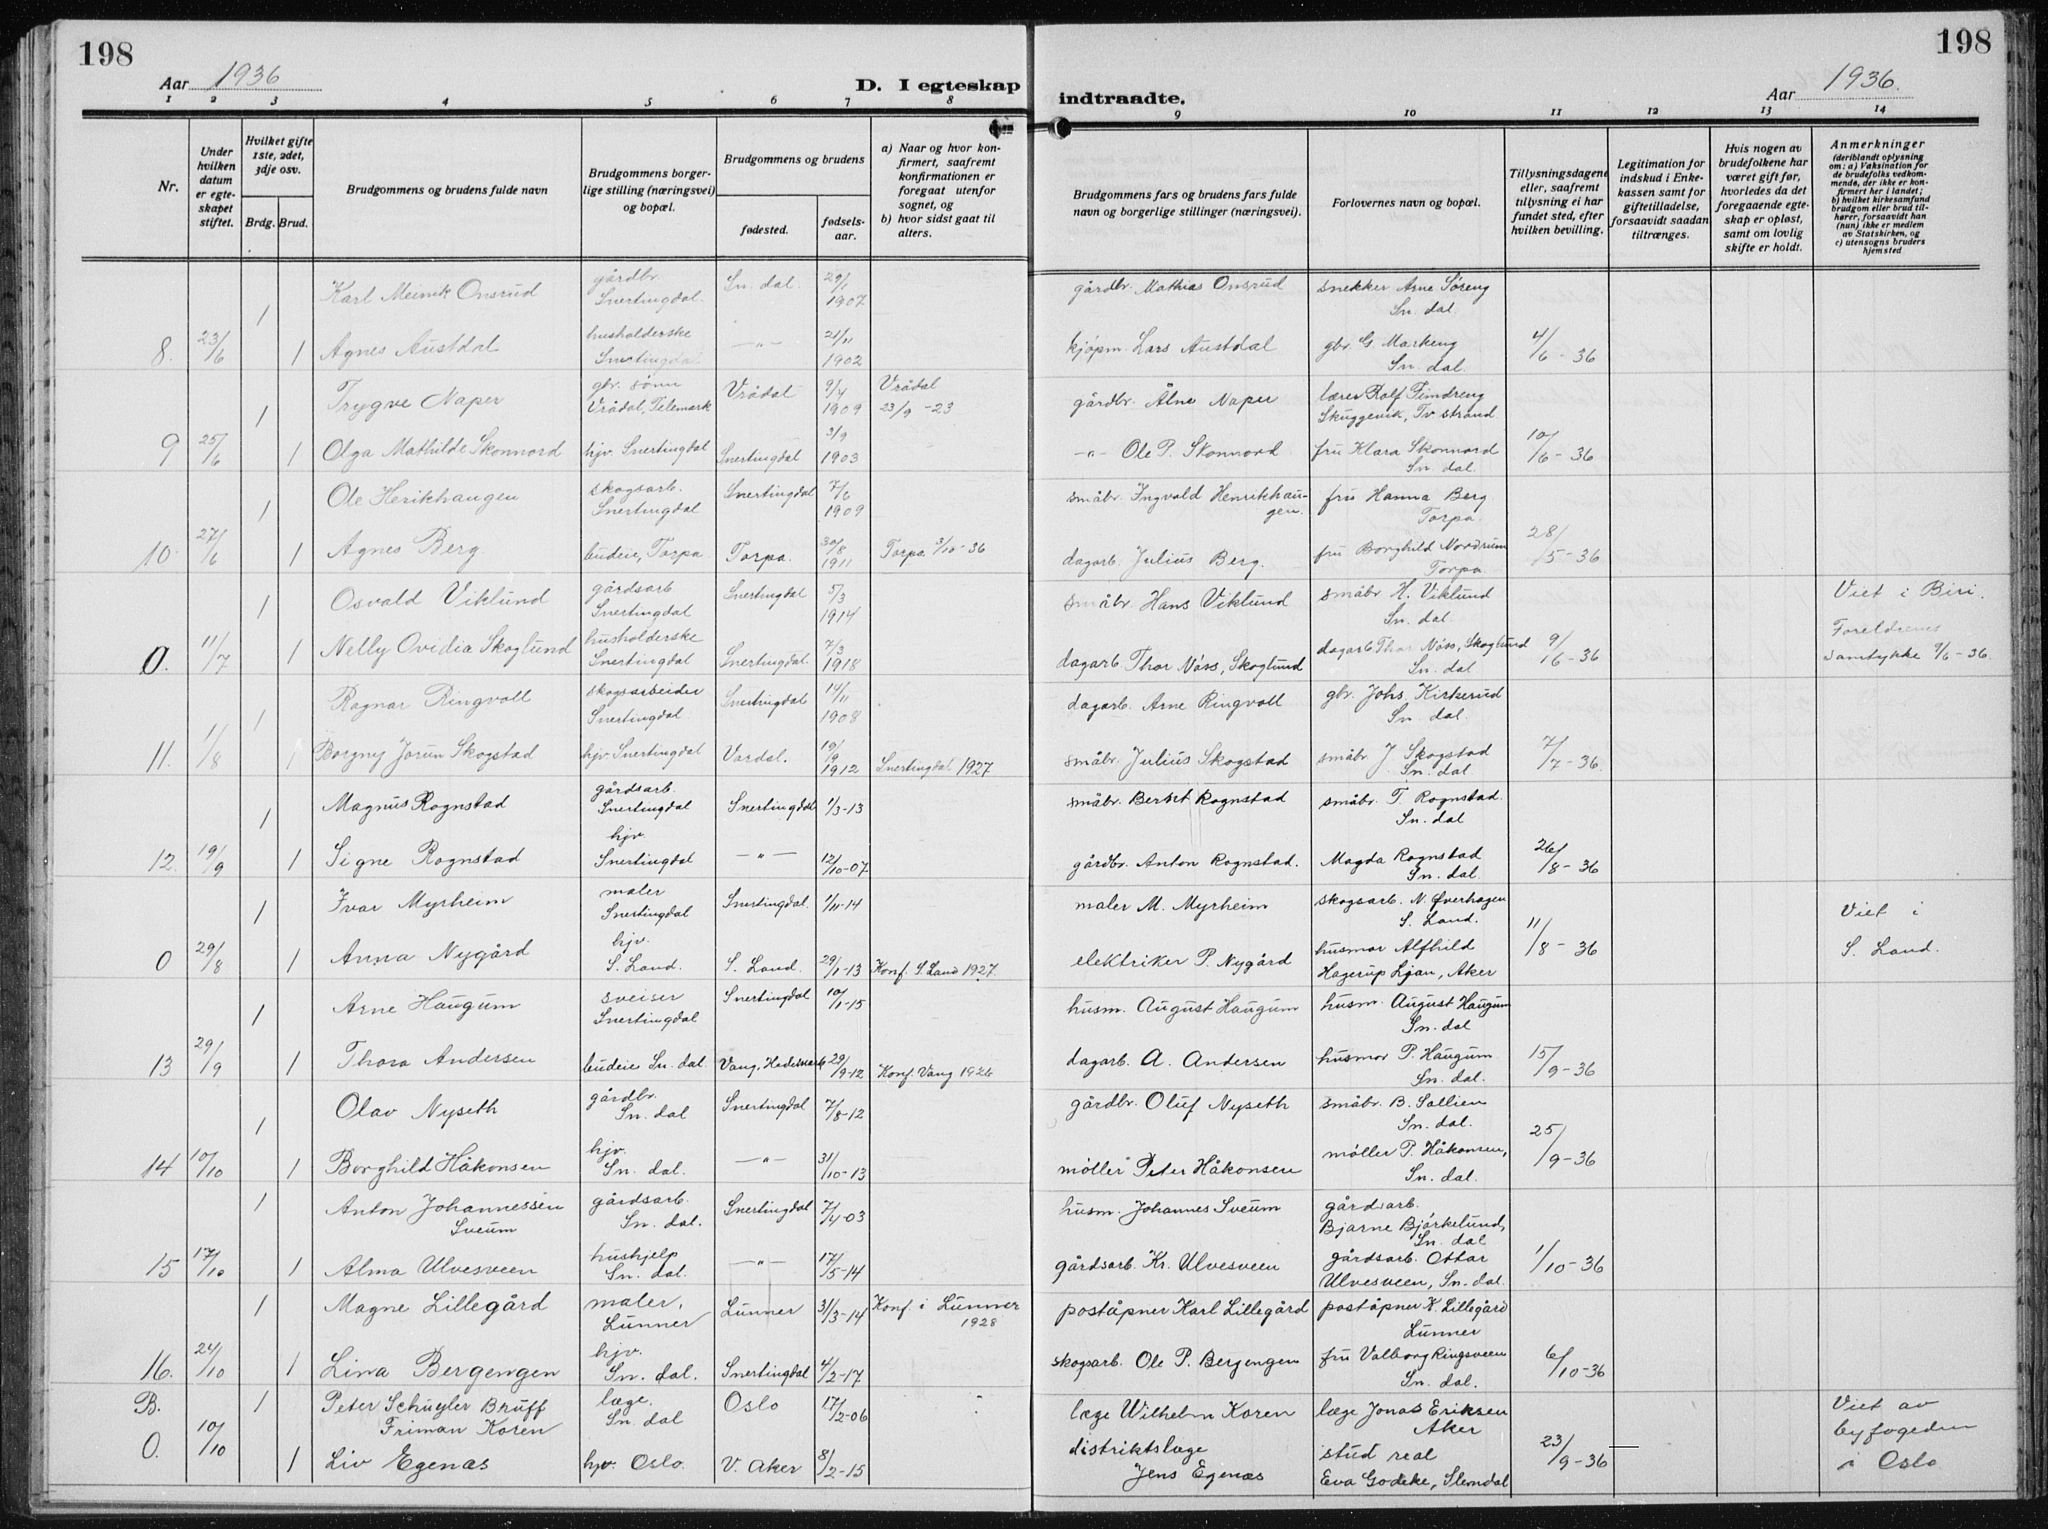 198
198
Aar 1936
D. I egteskap
indtraadte.
Aar 1936.
1 2 3 4 5 6 7 8
9 10 11 12 13 14
Nr.
Under hvilken datum er egteskapet stiftet.
Hvilket gifte 1ste, 2det, 3dje osv.
Brdg. Brud.
Brudgommens og brudens fulde navn
Brudgommens borgerlige stilling (næringsvei) og bopæl.
Brudgommens og brudens
fødested. fødsels-aar.
a) Naar og hvor konfirmert, saafremt konfirmationen er foregaat utenfor sognet, og
b) hvor sidst gaat til alters.
Brudgommens fars og brudens fars fulde navn og borgerlige stillinger (næringsvei).
Forlovernes navn og bopæl.
Tillysningsdagene eller, saafremt tillysning ei har fundet sted, efter hvilken bevilling.
Legitimation for indskud i Enkekassen samt for giftetilladelse, forsaavidt saadan tiltrænges.
Hvis nogen av brudefolkene har været gift før, hvorledes da det foregaaende egteskap er opløst, samt om lovlig skifte er holdt.
Anmerkninger (deriblandt oplysning om: a) Vaksination for de brudefolks vedkommende, der ikke er konfirmert her i landet; b) hvilket kirkesamfund brudgom eller brud tilhører, forsaavidt han (hun) ikke er medlem av Statskirken, og c) utensogns bruders hjemsted
1 Karl Meinik Onsrud gårdbr. Snertingdal. Sn. dal. 29/1 1907 gårdbr. Mathias Onsrud snekker Arne Søreng Sn. dal.
8. 23/6 1 Agnes Austdal husholderske Snertingdal -"- 21/11 1902 kjøpm. Lars Austdal gbr. G. Markeng Sn. dal. 4/6-36
1 Trygve Naper gbr. sønn Vrådal, Telemark Vrådal 9/4 1909 Vrådal 23/9-23 gårdbr. Ålne Naper lærer Rolf Timdreng Skuggevik, Tv strand
9 25/6 1 Olga Mathilde Skonnord hjv. Snertingdal Snertingdal 3/9 1903 -"- Ole P. Skonnord fru Klara Skonnord Sn. dal. 10/6-36
1 Ole Herikhaugen skogsarb. Snertingdal Snertingdal 7/6 1909 småbr. Ingvald Henrikhaugen. fru Hanna Berg Torpa.
10. 27/6 1 Agnes Berg. budeie, Torpa. Torpa. 30/8 1911 Torpa 3/10-36 dagarb. Julius Berg. fru Borghild Nordrum Torpa. 28/5-36
1 Osvald Viklund gårdsarb Snertingdal Snertingdal 5/3 1914 småbr. Hans Viklund småbr. H. Viklund Sn. dal. Viet i Biri.
0. 11/7 1 Nelly Ovidia Skoglund husholderske Snertingdal Snertingdal. 7/3 1918 dagarb. Thor Nøss, Skoglund dagarb Thor Nøss, Skoglund Sn. dal 9/6-36 Foreldrenes samtykke 9/6-36
1 Ragnar Ringvoll skogsarbeider Snertingdal Snertingdal 14/11 1908 dagarb. Arne Ringvoll gbr. Johs. Kirkerud Sn. dal.
11. 1/8 1 Borgny Jorun Skogstad hjv. Snertingdal Vardal. 19/9 1912 Snertingdal 1927 småbr. Julius Skogstad småbr J. Skogstad Sn. dal 7/7-36.
1 Magnus Rognstad gårdsarb. Snertingdal Snertingdal 1/3-13 småbr. Bernt Rognstad småbr. T. Rognstad. Sn. dal
12. 19/9 1 Signe Rognstad hjv. Snertingdal -"- 12/10-07 gårdbr. Anton Rognstad. Magda Rognstad Sn. dal. 26/8-36
1 Ivar Myrheim maler Snertingdal Snertingdal. 1/11-14 maler M. Myrheim skogsarb. N. Øverhagen S. Land. Viet i
0 29/8 1 Anna Nygård hjv. S. Land. S. Land. 29/1-13 Konf. S. Land 1927. elektriker P. Nygård husmor Alfhild Hagerup Ljan, Aker 11/8-36 S. Land.
1 Arne Haugum sveiser Snertingdal Snertingdal 10/1-15 husm. August Haugum husm. August Haugum Sn. dal
13 29/9 1 Thora Andersen budeie Sn. dal. Vang, Hedemark 29/9-12 Konf. Vang 1926 dagarb. A. Andersen husmor P. Haugum Sn. dal. 15/9-36
1 Olav Nyseth gårdbr. Sn. dal Snertingdal 7/8-12 gårdbr. Oluf Nyseth småbr. B. Sollien Sn. dal.
14 10/10 1 Borghild Håkonsen hjv. Sn. dal. -"- 31/10-13 møller Peter Håkonsen møller P. Håkonsen, Sn. dal. 25/9-36
1 Anton Johannessen Sveum gårdsarb. Sn. dal. Snertingdal 7/4-03 husm. Johannes Sveum gårdsarb. Bjarne Bjørkelund, Sn. dal
15 17/10 1 Alma Ulvesveen hushjelp Sn. dal. -"- 17/5-14 gårdsarb. Kr. Ulvesveen gårdsarb. Ottar Ulvesveen, Sn. dal. 1/10-36
1 Magne Lillegård maler, Lunner Lunner 31/3-14 Konf. i Lunner 1928 poståpner Karl Lillegård poståpner K. Lillegård Lunner
16. 24/10 1 Lina Bergengen hjv. Sn. dal. Snertingdal 4/2-17 skogsarb. Ole P. Bergengen fru Valborg Ringsveen Sn. dal. 6/10-36
B. 1 Peter Schuyler Bruff Friman Koren læge. Sn. dal Oslo 17/2-06 læge Wilhelm Koren læge Jonas Eriksen Aker Viet av
0. 10/10 1 Liv Egenæs hjv. Oslo. V. Aker 8/2-15 distriktslæge Jens Egenæs stud real Eva Godeke, Slemdal 23/9-36 byfogeden i Oslo